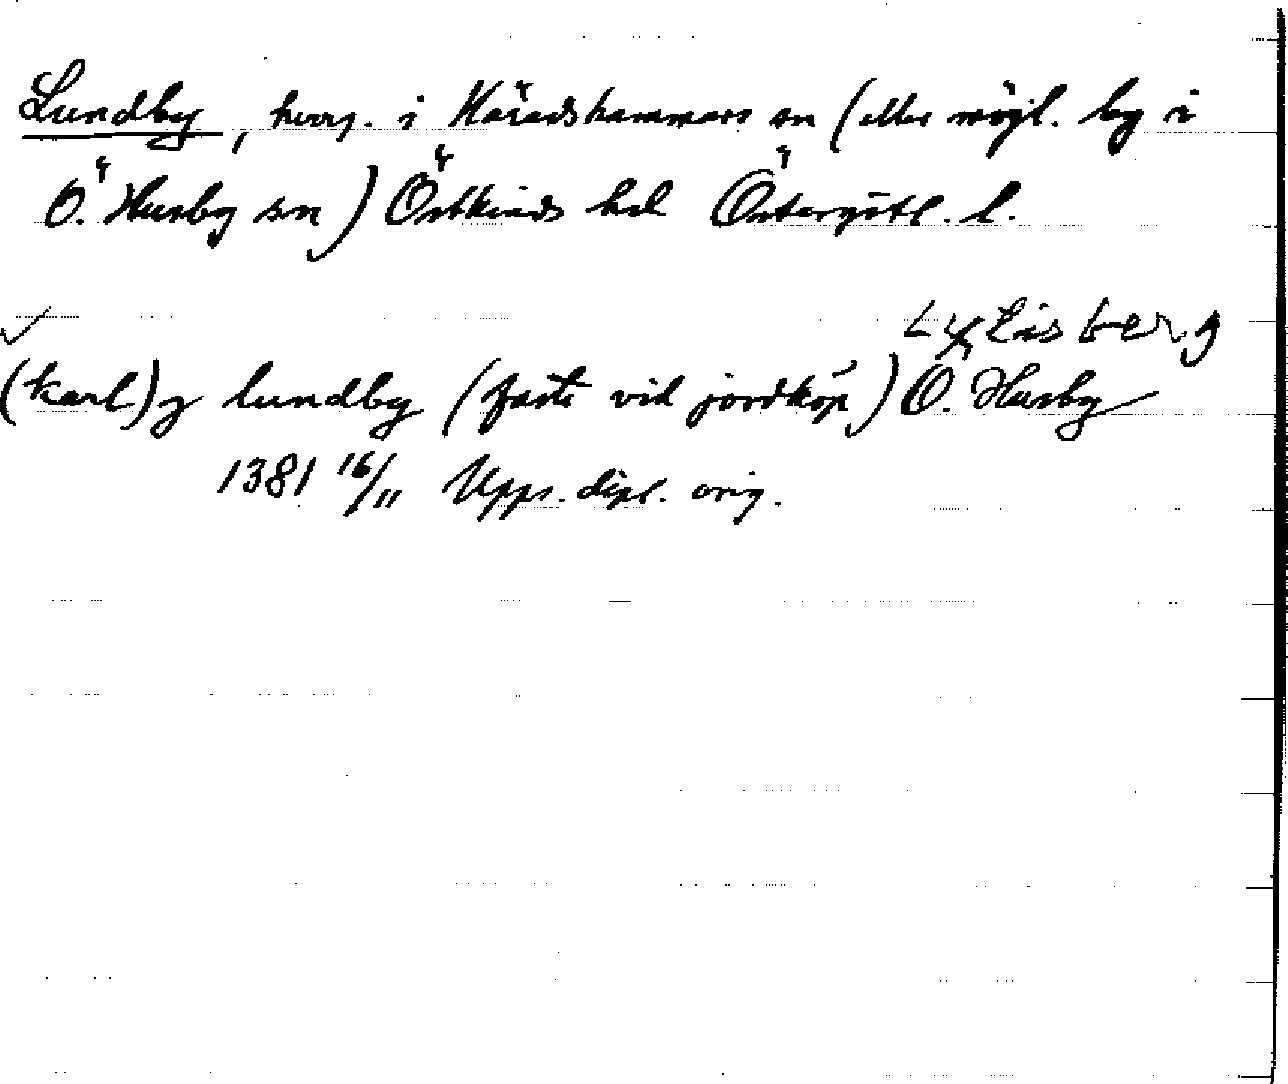 Lundby, herrg. i Häradshammars sn (eller möjl. by i
Ö. Husby sn) Östkinds hd Östergötl. l.
Lisberg
(karl) j lundby (faste vid jordköp) Ö. Husby
1381 16/11 Upps. dipl. orig.